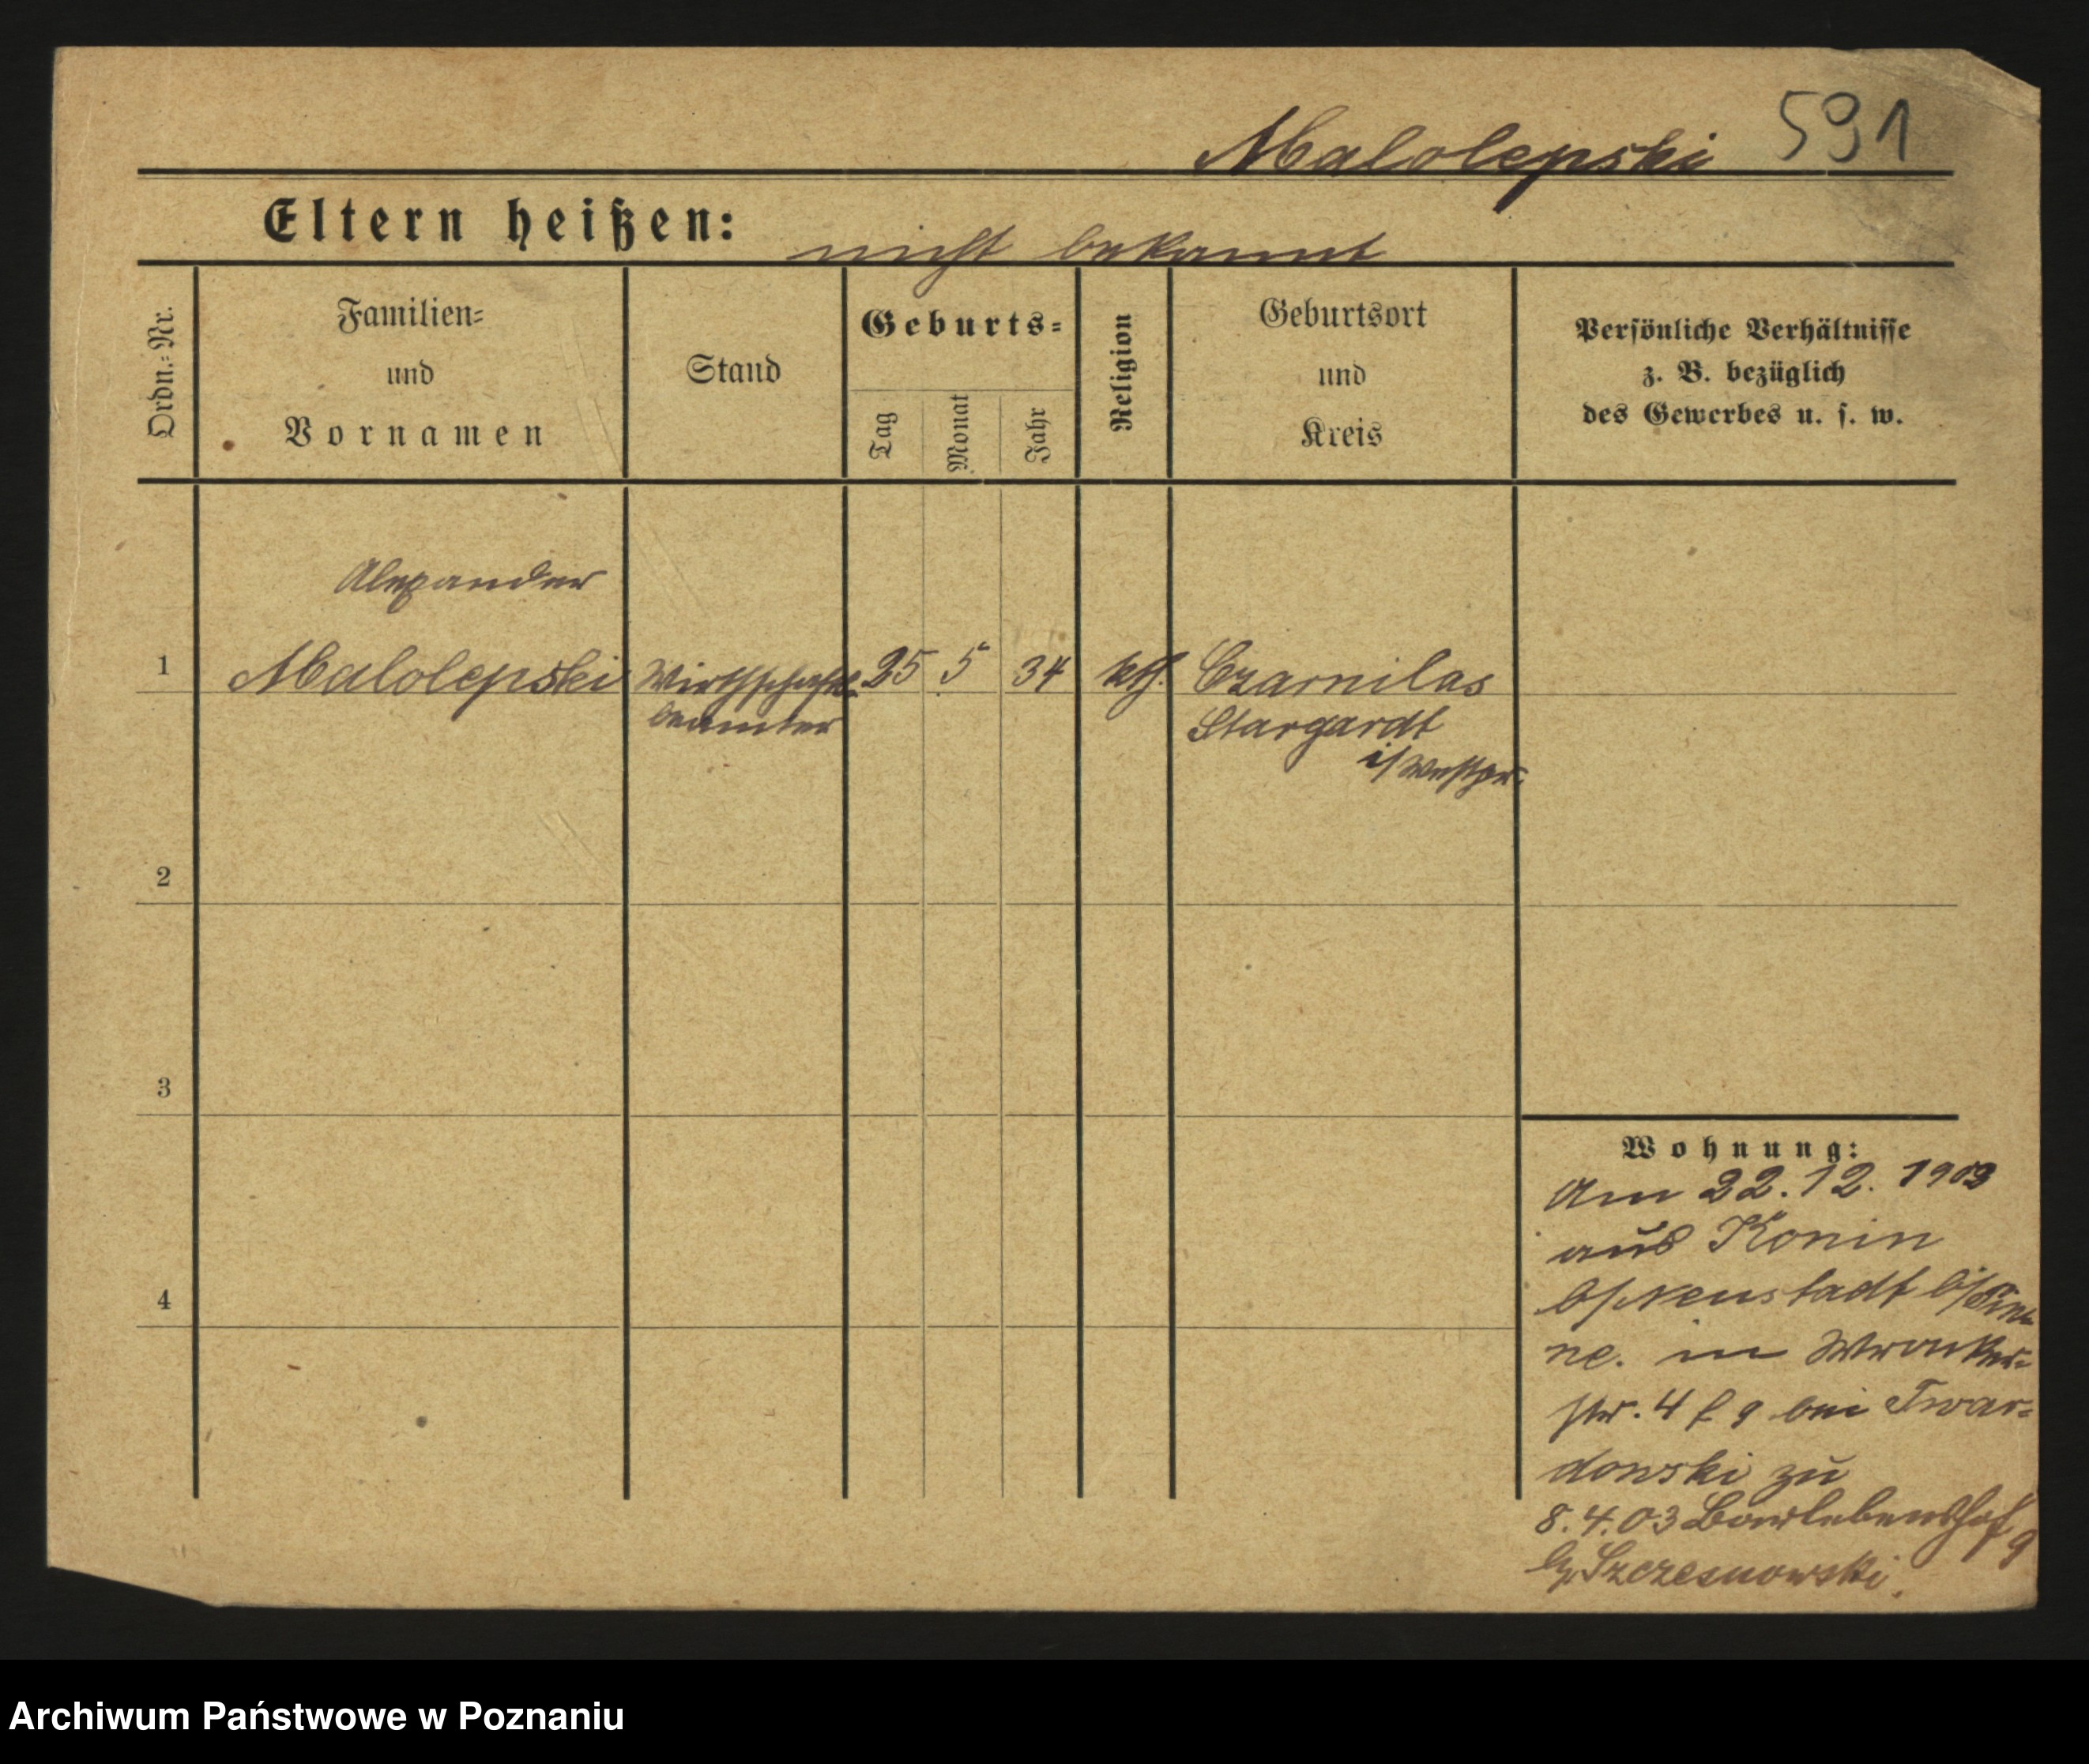 Malolepski 591
Eltern heißen: nicht bekannt
Ordn.-Nr.
Familien-
und
Vornamen
Stand
Geburts-
Tag
Monat
Jahr
Religion
Geburtsort
und
Kreis
Persönliche Verhältnisse
z. B. bezüglich
des Gewerbes u. s. w.
Alexander
1 Malolepski Wirthschafts- 25 5 34 kth. Czarnilas
beamter Stargardt
i/Westpr.
2
3
4
Wohnung:
Am 22. 12. 1902
aus Konin
b/Neustadt b/Pin-
ne. in Wronker-
str. 4 f 9 bei Twar-
dowski zu
8. 4. 03 9
Szczesnowski.
Archiwum Państwowe w Poznaniu